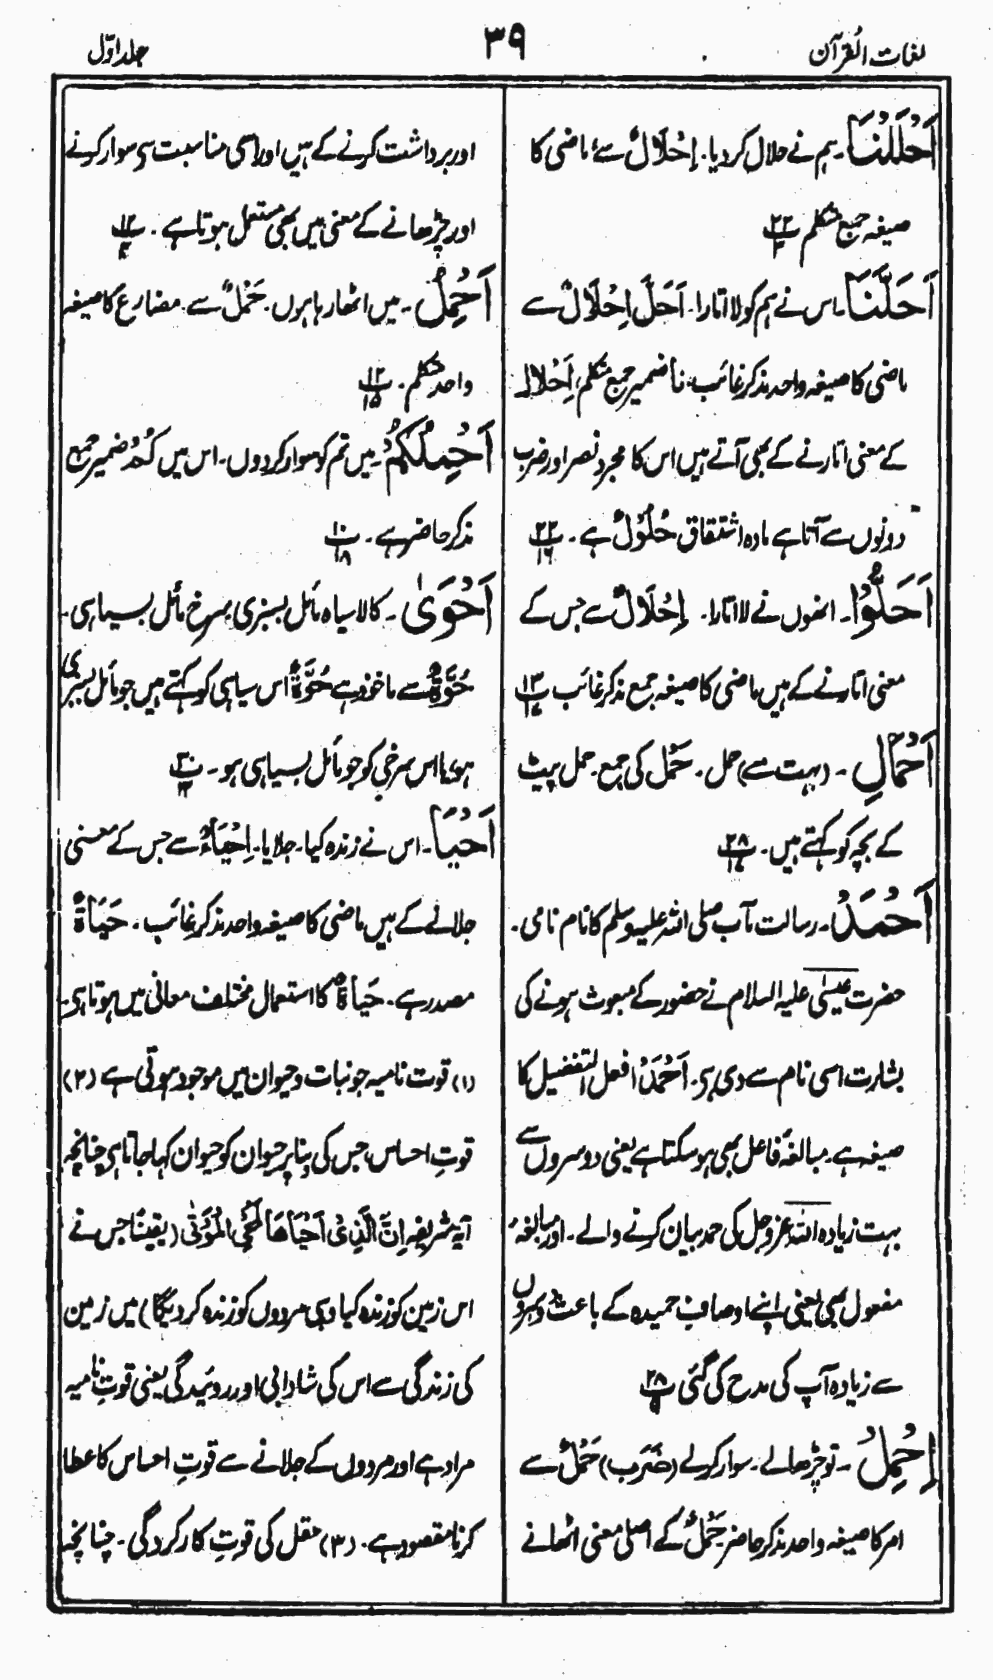 لغات القرآن
۳۹
جلد اوّل
اَحْلَلْنَا۔ ہم نے حلال کر دیا۔ اِحْلَالٌ سے ماضی کا
صیغہ جمع متکلم ۲۲/۳
اَحَلَّنَا۔ اس نے ہم کو لا اتارا۔ اَحَلَّ اِحْلَالٌ سے
ماضی کا صیغہ واحد مذکر غائب۔ نا ضمیر جمع متکلم، اِحْلَال
کے معنی اتارنے کے بھی آتے ہیں اس کا مجرد نصر اور ضرب
دونوں سے آتا ہے مادہ اشتقاق حُلُوْلٌ ہے۔ ۲۲/۱۶
اَحَلُّوْا۔ انھوں نے لا اتارا۔ اِحْلَالٌ سے جس کے
معنی اتارنے کے ہیں ماضی کا صیغہ جمع مذکر غائب ۱۳/۱۷
اَحْمَالِ۔ (بہت سے) حمل۔ حَمْل کی جمع۔ حمل پیٹ
کے بچہ کو کہتے ہیں۔ ۲۸/۱۷
اَحْمَدُ۔ رسالت مآب صلی اللہ علیہ وسلم کا نام نامی۔
حضرت عیسیٰ علیہ السلام نے حضور کے مبعوث ہونے کی
بشارت اسی نام سے دی ہی۔ اَحْمَدُ افعل التفضیل کا
صیغہ ہے۔ مبالغۂ فاعل بھی ہو سکتا ہے یعنی دوسروں سے
بہت زیادہ اللہ عزوجل کی حمد بیان کرنے والے۔ اور مبالغۂ
مفعول بھی یعنی اپنے اوصافِ حمیدہ کے باعث دوسروں
سے زیادہ آپ کی مدح کی گئی ۲۸/۹
اِحْمِلْ۔ تو چڑھا لے۔ سوار کر لے (ضَرَب) حَمْلٌ سے
امر کا صیغہ واحد مذکر حاضر حَمْلٌ کے اصلی معنی اٹھانے
اور برداشت کرنے کے ہیں اور اسی مناسبت سی سوار کرنے
اور چڑھانے کے معنی میں بھی مستعمل ہوتا ہے۔ ۱۲/۴
اَحْمِلُ۔ میں اٹھا رہا ہوں۔ حَمْلٌ سے۔ مضارع کا صیغہ
واحد متکلم۔ ۱۲/۱۵
اَحْمِلُکُمْ۔ میں تم کو سوار کر دوں۔ اس میں کُمْ ضمیر جمع
مذکر حاضر ہے۔ ۱۰/۱۸
اَحْوٰی۔ کالا سیاہ مائل بسبزی یا سرخ مائل بسیاہی۔
حُوَّۃٌ سے ماخوذ ہے حُوَّۃٌ اس سیاہی کو کہتے ہیں جو مائل بسبزی
ہو یا اس سرخی کو جو مائل بسیاہی ہو۔ ۳۰/۱۲
اَحْیَا۔ اس نے زندہ کیا۔ جلایا۔ اِحْیَاءٌ سے جس کے معنی
جلانے کے ہیں ماضی کا صیغہ واحد مذکر غائب۔ حَیَاۃٌ
مصدر ہے۔ حَیَاۃٌ کا استعمال مختلف معانی میں ہوتا ہی۔
(۱) قوت نامیہ جو نبات و حیوان میں موجود ہوتی ہے (۲)
قوتِ احساس جس کی بنا پر حیوان کو حیوان کہا جاتا ہی چنانچہ
آیہ شریفہ اِنَّ الَّذِیْٓ اَحْیَاھَا لَمُحْیِ الْمَوْتٰی (یقینًا جس نے
اس زمین کو زندہ کیا وہی مردوں کو زندہ کر دیگا) میں زمین
کی زندگی سے اس کی شادابی اور روئیدگی یعنی قوتِ نامیہ
مراد ہے اور مردوں کے جلانے سے قوتِ احساس کا عطا
کرنا مقصود ہے۔ (۳) عقل کی قوتِ کارکردگی۔ چنانچہ